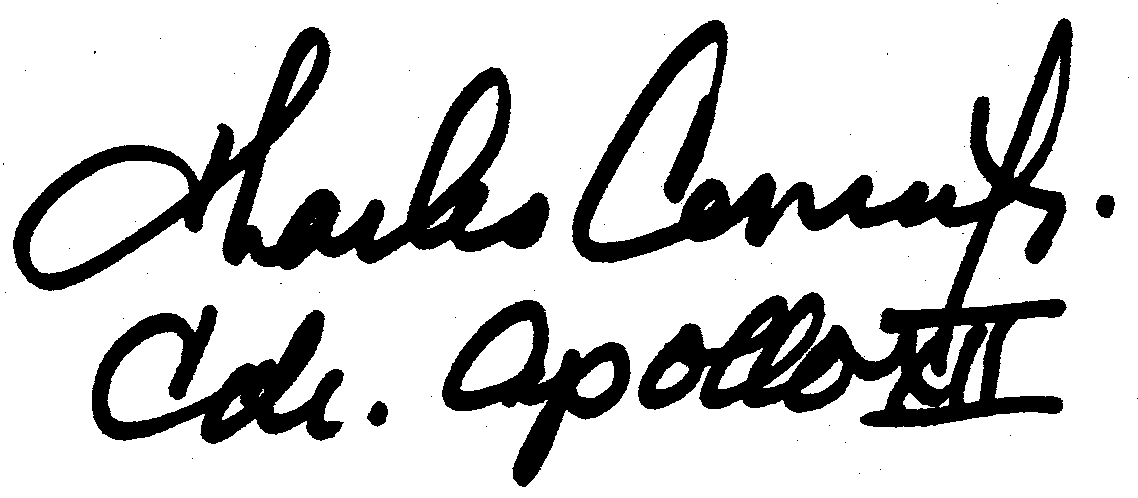 Charles Conrad Jr.
Cdr. Apollo XII